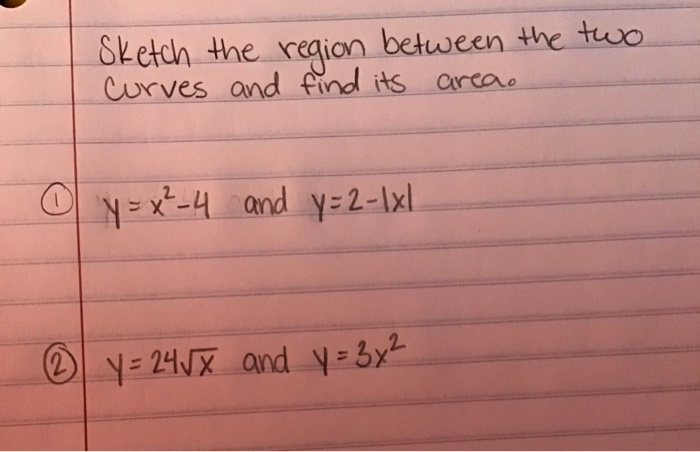 Sketch the region between the two
curves and find its area.
① y = x²-4 and y=2-|x|
② y = 24√x and y = 3x²